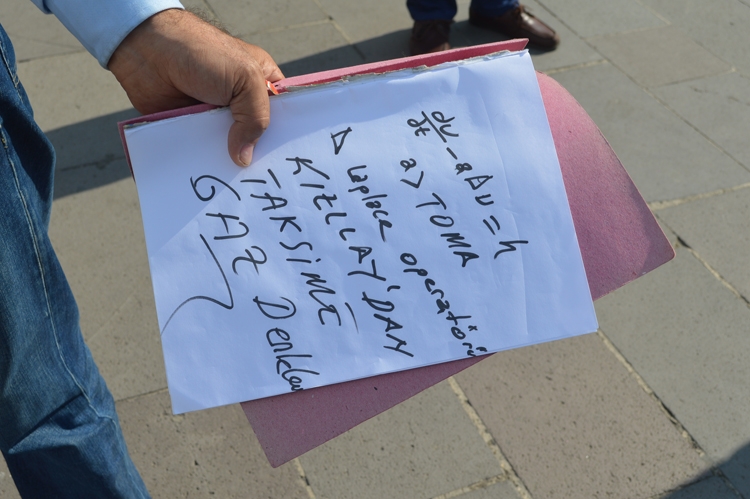 du/dt - aΔu = h
a > TOMA
Δ Laplace operatörü
KIZILAY'DAN
TAKSİME
GAZ Denklem